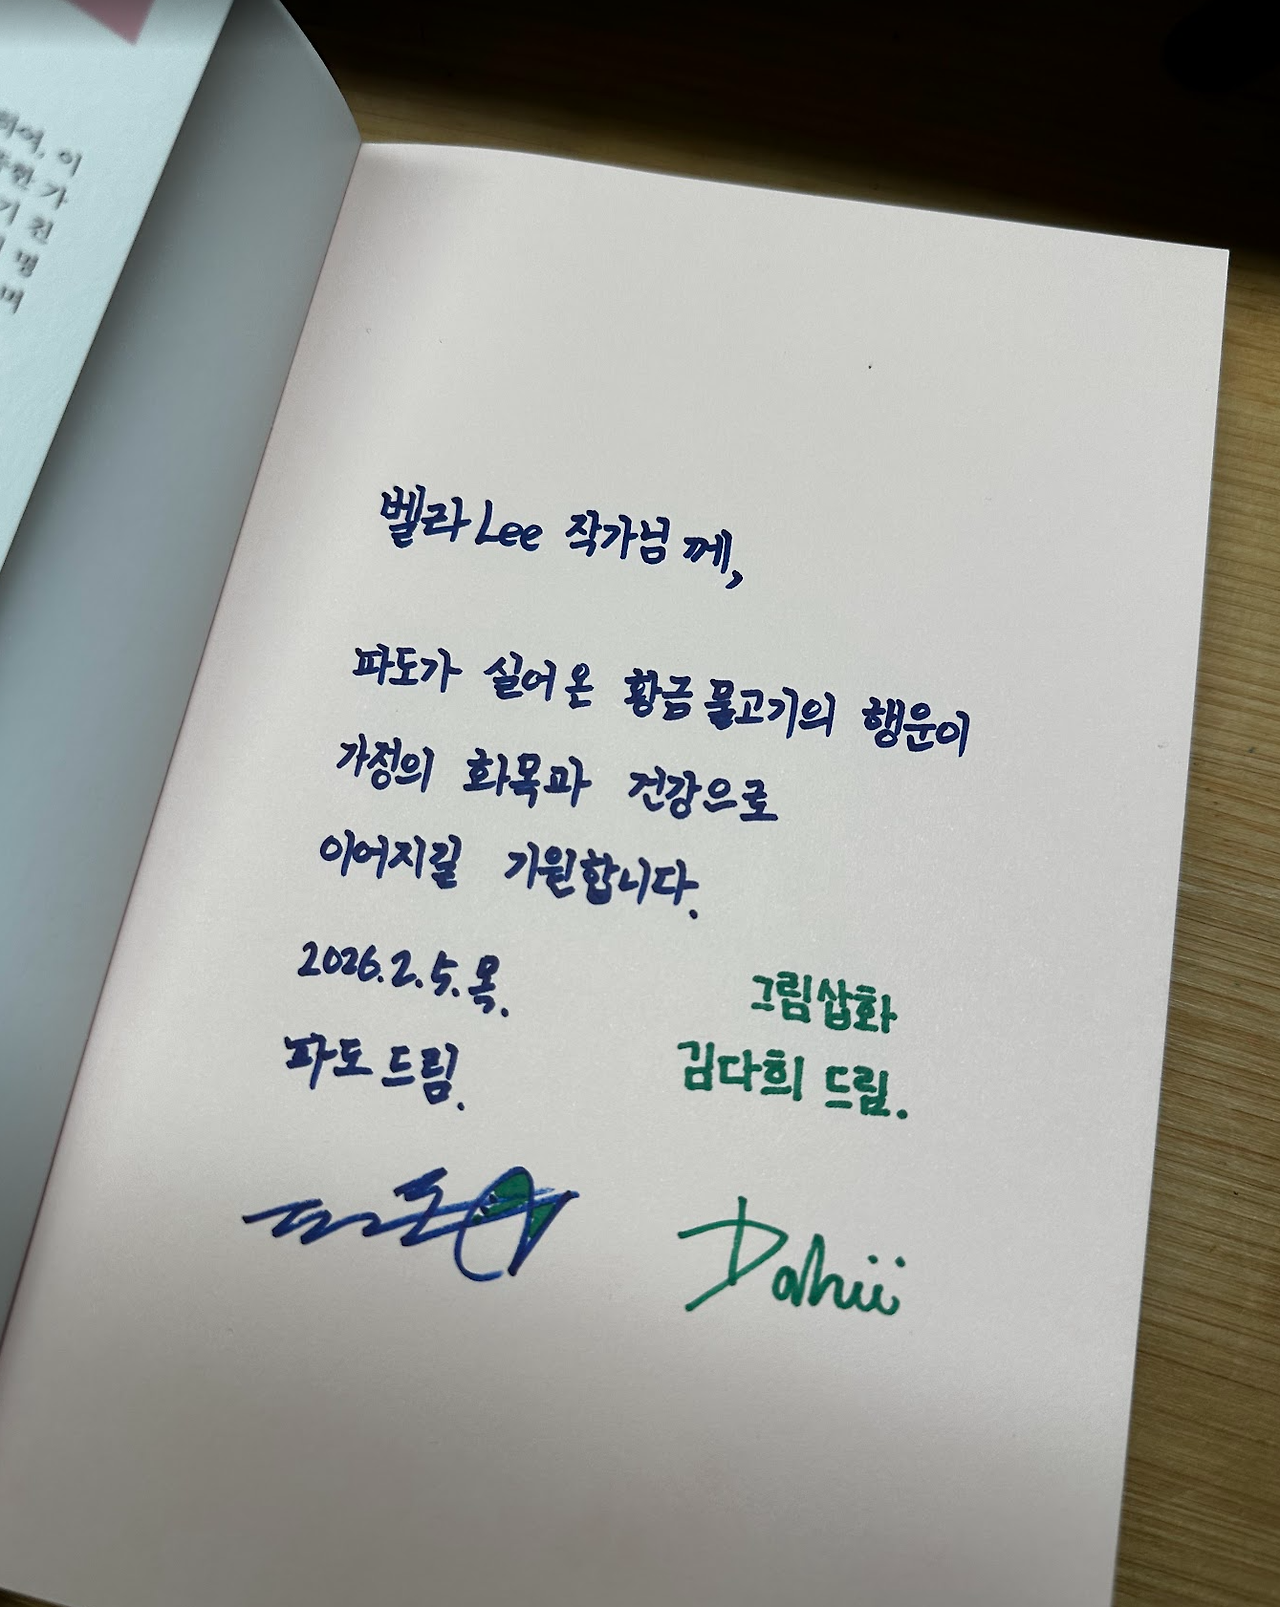 하여, 이
가
기 천
명
며
벨라 Lee 작가님께,
파도가 실어온 황금물고기의 행운이
가정의 화목과 건강으로
이어지길 기원합니다.
2026.2.5.목.
파도 드림.
그림삽화
김다희 드림.
Dahii